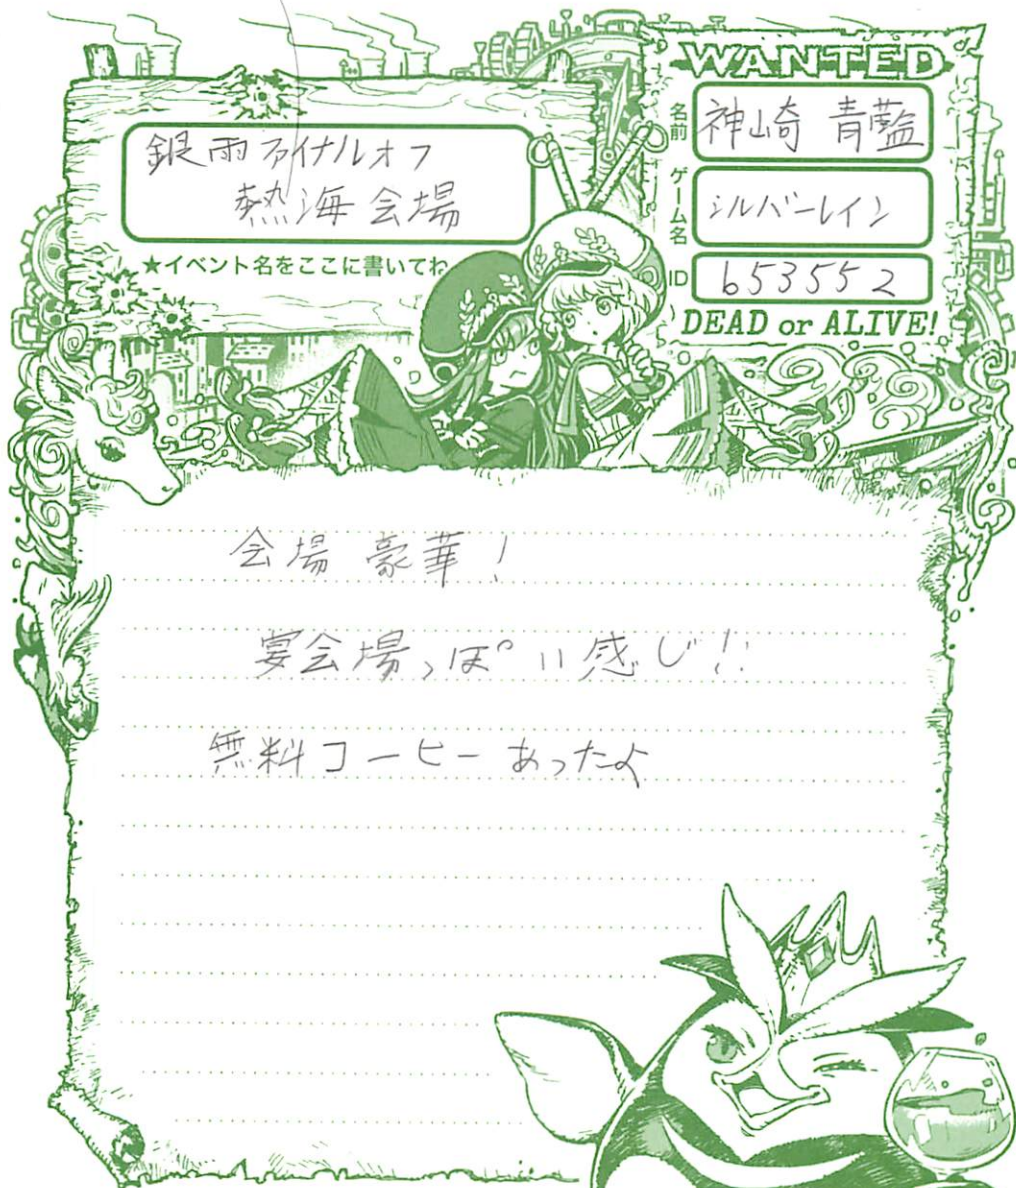 WANTED
銀雨ファイナルオフ
熱海会場
★イベント名をここに書いてね
名前
神崎 青藍
ゲーム名
シルバーレイン
ID
b53552
DEAD or ALIVE!
会場 豪華!
宴会場っぽい感じ!!
無料コーヒーあったよ